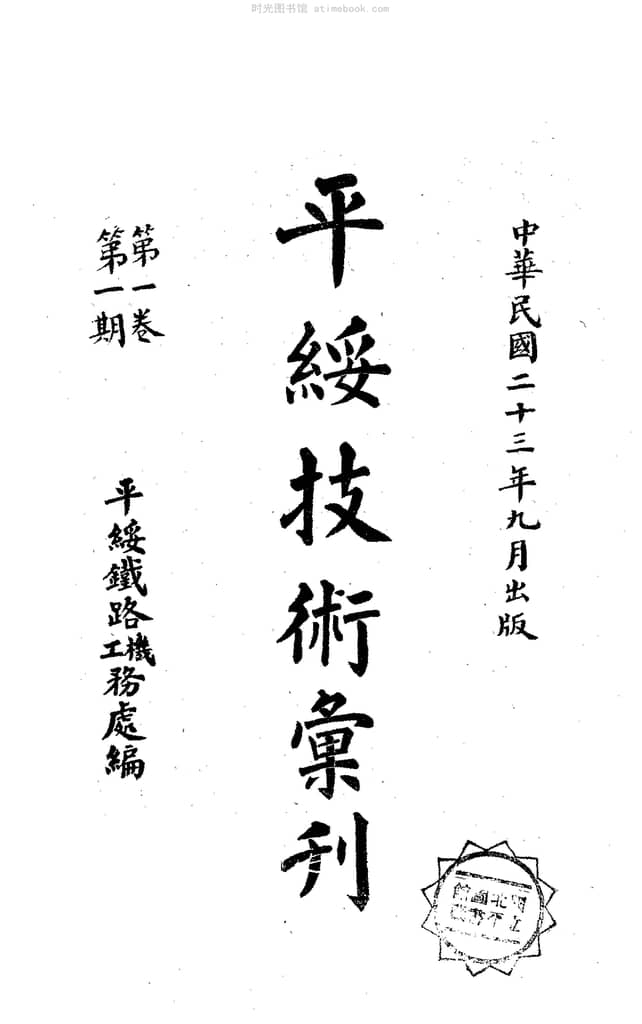 时光图书馆 atimebook.com
中華民國二十三年九月出版
平綏技術彙刊
第一卷
第一期
平綏鐵路機工務處編
國立北平圖書館藏